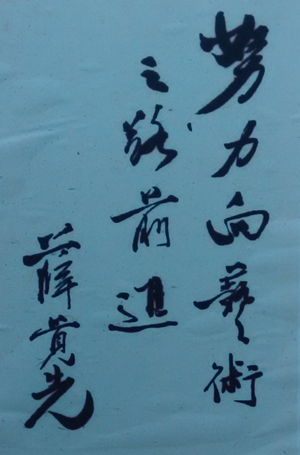 努力向藝術
之路前進
薛覚先